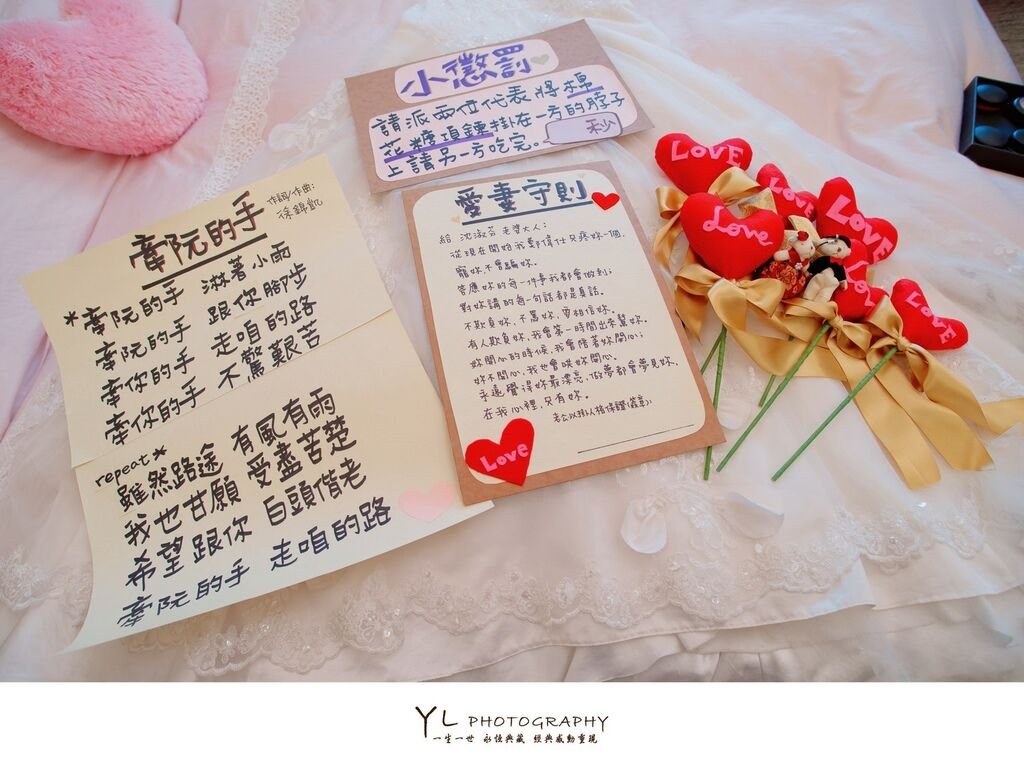 小懲罰
請派兩位代表將棉
花糖項鍊掛在一方的脖子
上請另一方吃完。
秒
牽阮的手
作詞/作曲:
徐錦凱
*牽阮的手 淋著小雨
牽阮的手 跟你腳步
牽你的手 走咱的路
牽你的手 不驚艱苦
repeat*
雖然路途 有風有雨
我也甘願 受盡苦楚
希望跟你 白頭偕老
牽阮的手 走咱的路
愛妻守則
給 沈淑芬 老婆大人:
從現在開始我鄭偉仕只疼妳一個,
寵妳,不會騙妳。
答應妳的每一件事我都會做到;
對妳講的每一句話都是真話。
不欺負妳,不罵妳,要相信妳。
有人欺負妳,我會第一時間出來幫妳。
妳開心的時候,我會陪著妳開心;
妳不開心,我也會哄妳開心。
永遠覺得妳最漂亮,做夢都會夢見妳,
在我心裡,只有妳。
老公以掛人格保證(簽章)
Love
LOVE
Love
LOVE
LOVE
LOVE
LOVE
YL PHOTOGRAPHY
一生一世 永恆典藏 經典感動重現